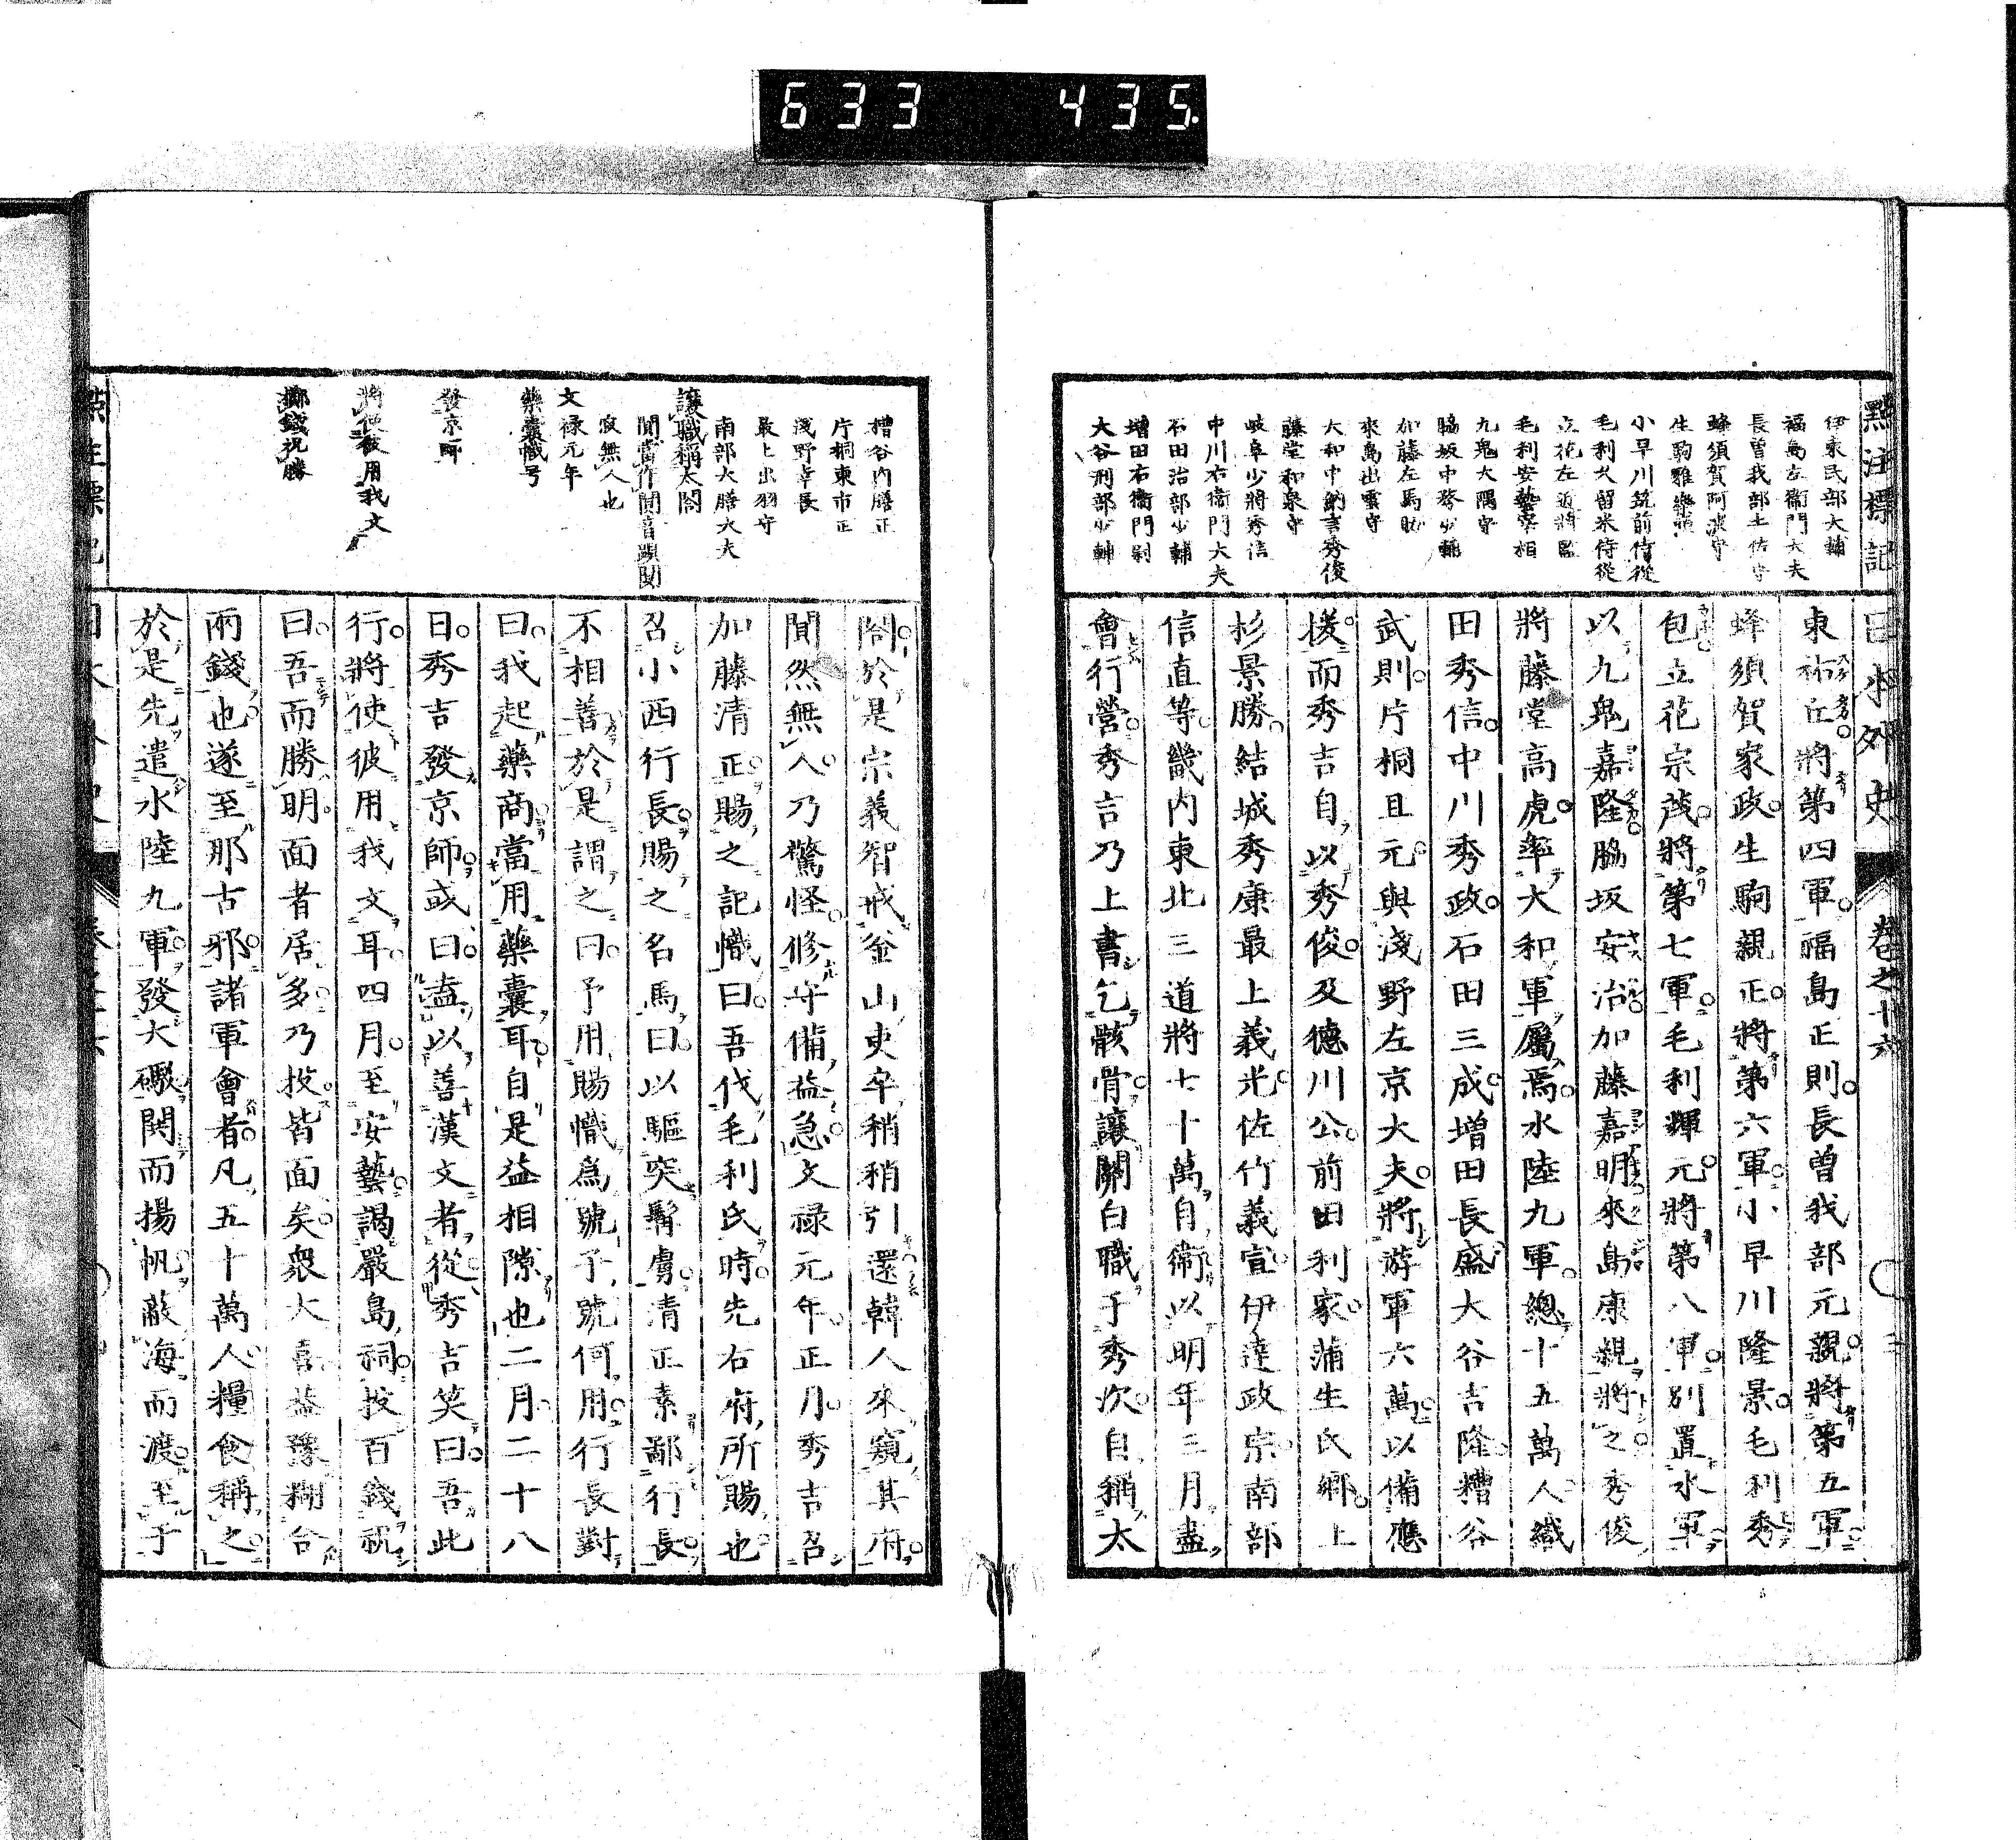 633 435.
點注標記
日本外史
卷之十六
伊東民部大輔
福島左衞門大夫
長曾我部土佐守
蜂須賀阿波守
生駒雅樂頭
小早川筑前侍從
毛利久留米侍從
立花左近將監
毛利安藝宰相
九鬼大隅守
脇坂中務少輔
加藤左馬助
來島出雲守
大和中納言秀俊
藤堂和泉守
岐阜少將秀信
中川右衞門大夫
石田治部少輔
增田右衞門尉
大谷刑部少輔
東祐丘將第四軍福島正則長曾我部元親將第五軍
蜂須賀家政生駒親正將第六軍小早川隆景毛利秀
包立花宗茂將第七軍毛利輝元將第八軍別置水軍
以九鬼嘉隆脇坂安治加藤嘉明來島康親將之秀俊
將藤堂高虎率大和軍屬焉水陸九軍總十五萬人織
田秀信中川秀政石田三成增田長盛大谷吉隆糟谷
武則片桐且元與淺野左京大夫將游軍六萬以備應
援而秀吉自以秀俊及德川公前田利家蒲生氏鄉上
杉景勝結城秀康最上義光佐竹義宣伊達政宗南部
信直等畿內東北三道將士十萬自衞以明年三月盡
會行營秀吉乃上書乞骸骨讓關白職于秀次自稱太
糟谷內膳正
片桐東市正
淺野幸長
最上出羽守
南部大膳大夫
讓職稱太閤
閒當作闃音䦧闃
寂無人也
文祿元年
藥囊幟号
發京師
將使彼用我文
擲錢祝勝
閤於是宗義智戒釜山吏卒稍稍引還韓人來窺其府
閒然無人乃驚怪修守備益急文祿元年正月秀吉召
加藤清正賜之記幟曰吾伐毛利氏時先右府所賜也
召小西行長賜之名馬曰以驅突髯虜清正素鄙行長
不相善於是謂之曰予用賜幟爲號子號何用行長對
曰我起藥商當用藥囊耳自是益相隙也二月二十八
日秀吉發京師或曰盍以善漢文者從秀吉笑曰吾此
行將使彼用我文耳四月至安藝謁嚴島祠投百錢祝
曰吾而勝明面者居多乃投皆面矣衆大喜益豫糊合
兩錢也遂至那古邪諸軍會者凡五十萬人糧食稱之
於是先遣水陸九軍發大礮閧而揚帆蔽海而渡至于